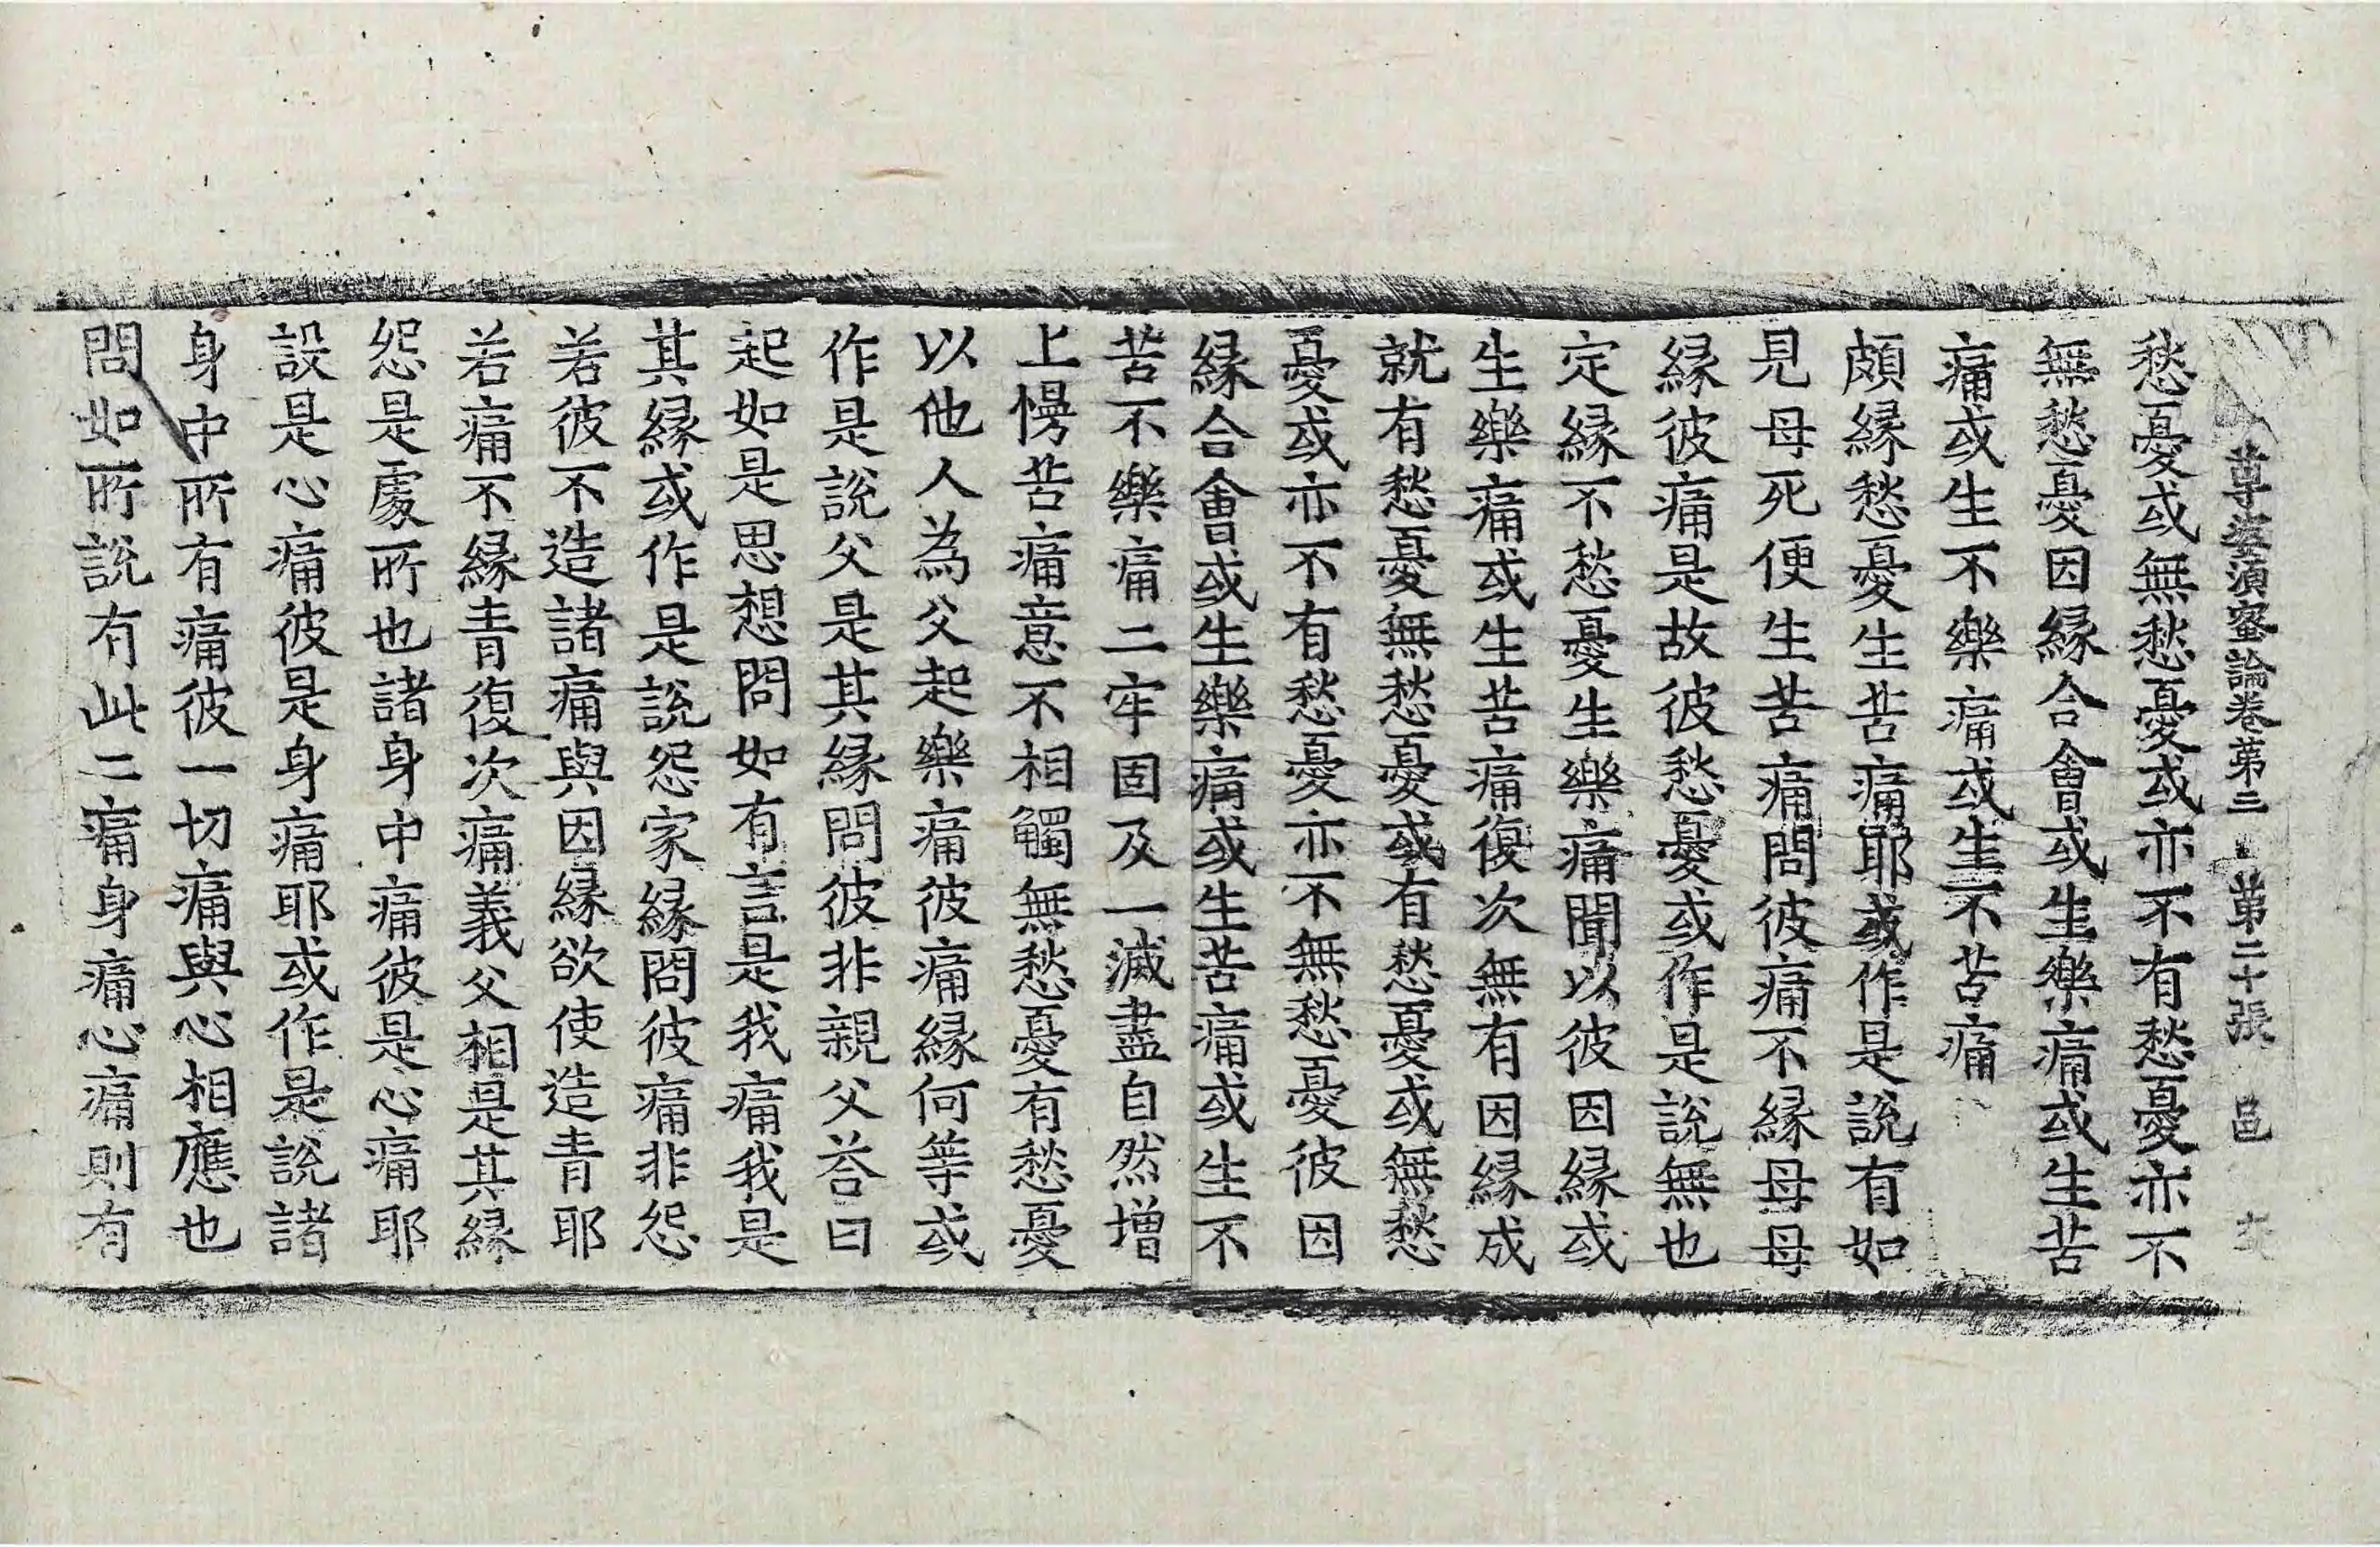 尊婆須蜜論卷第三 第二十張 邑
愁憂或無愁憂或亦不有愁憂亦不
無愁憂因緣合會或生樂痛或生苦
痛或生不樂痛或生不苦痛
頗緣愁憂生苦痛耶或作是說有如
見母死便生苦痛問彼痛不緣母母
緣彼痛是故彼愁憂或作是說無也
定緣不愁憂生樂痛聞以彼因緣或
生樂痛或生苦痛復次無有因緣成
就有愁憂無愁憂或有愁憂或無愁
憂或亦不有愁憂亦不無愁憂彼因
緣合會或生樂痛或生苦痛或生不
苦不樂痛二牢固及一滅盡自然增
上慢苦痛意不相觸無愁憂有愁憂
以他人為父起樂痛彼痛緣何等或
作是說父是其緣問彼非親父荅曰
起如是思想問如有言是我痛我是
其緣或作是說怨家緣問彼痛非怨
若彼不造諸痛與因緣欲使造青耶
若痛不緣青復次痛義父相是其緣
怨是處所也諸身中痛彼是心痛耶
設是心痛彼是身痛耶或作是說諸
身中所有痛彼一切痛與心相應也
問如所說有此二痛身痛心痛則有